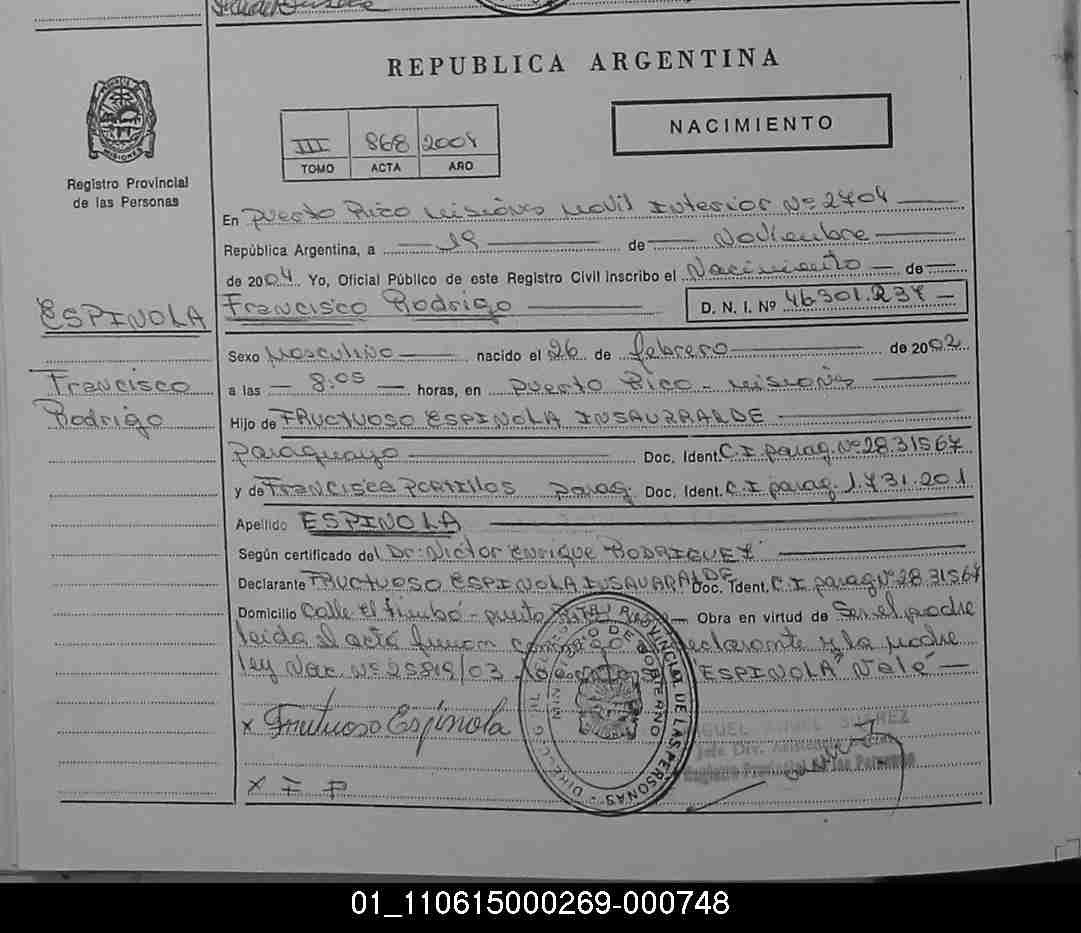 REPUBLICA ARGENTINA
NACIMIENTO
III 868 2004
TOMO ACTA AÑO
Registro Provincial
de las Personas
En Puerto Rico Misiones Movil Interior Nº 2704
República Argentina, a 19 de Noviembre
de 2004 Yo, Oficial Público de este Registro Civil inscribo el Nacimiento de
Francisco Rodrigo D. N. I. Nº 46301.237
ESPINOLA
Francisco
Rodrigo
Sexo Masculino nacido el 26 de febrero de 2002
a las 8.05 horas, en Puerto Rico - Misiones
Hijo de FRUCTUOSO ESPINOLA INSAURRALDE
Paraguayo Doc. Ident. C.I. parag. Nº 28.31567
y de Francisca PORTILLOS parag. Doc. Ident. C.I. parag. 1.731.201
Apellido ESPINOLA
Según certificado del Dr. Victor Enrique RODRIGUEZ
Declarante FRUCTUOSO ESPINOLA INSAURALDE Doc. Ident. C.I. parag Nº 28.31567
Domicilio Calle El Timbó - Obra en virtud de Ser el padre
leida el acta declarante y la madre
ley Nac. Nº 25819/03 "ESPINOLA" Vale
x Frutuoso Espinola
x F P
REGISTRO PROVINCIAL DE LAS PERSONAS
MINISTERIO DE GOBIERNO
MISIONES
Registro Provincial de las Personas
01_110615000269-000748